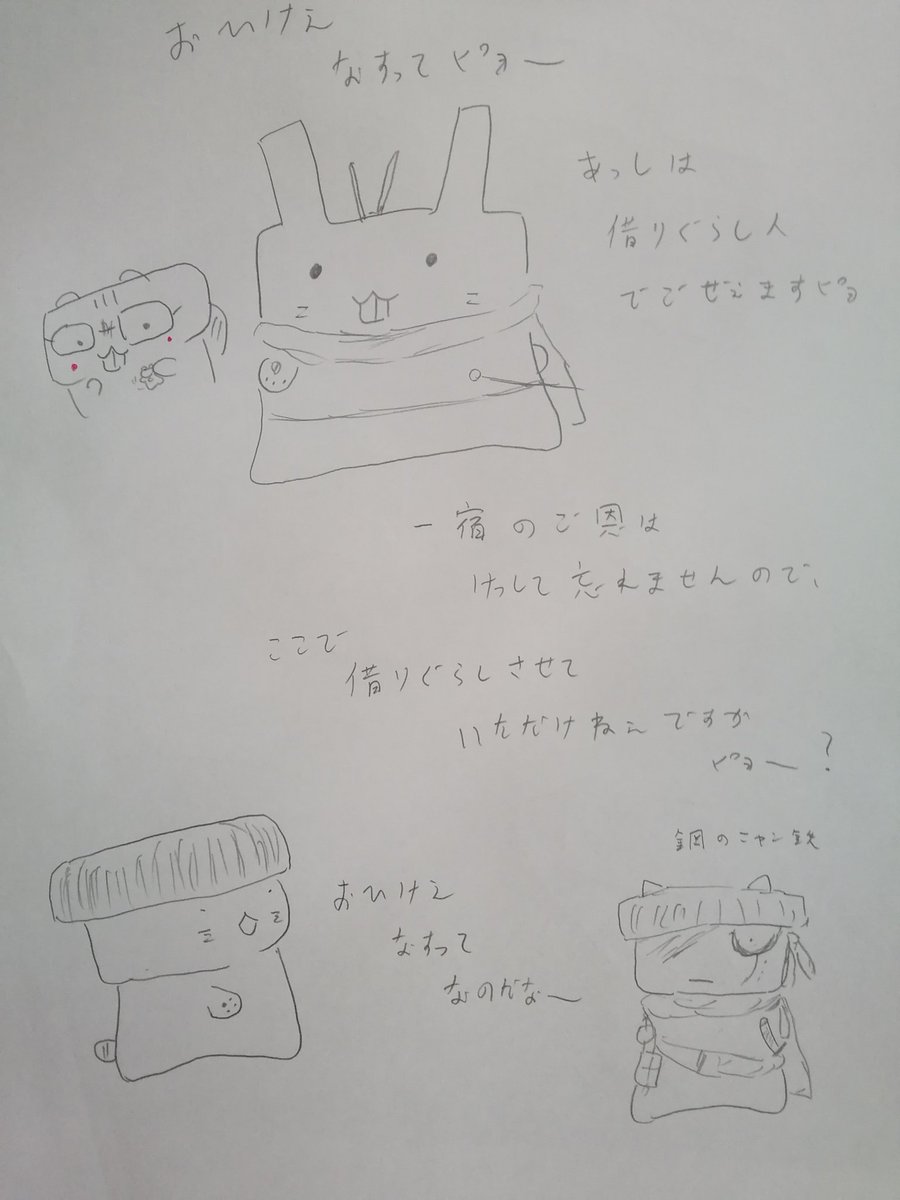 おひけえ
なすってピョー
あっしは
借りぐらし人
でごぜえますピョ
一宿のご恩は
けっして忘れませんので、
ここで
借りぐらしさせて
いただけねえですか
ピョー？
鋼のニャン鉄
おひけえ
なすって
なのだなー